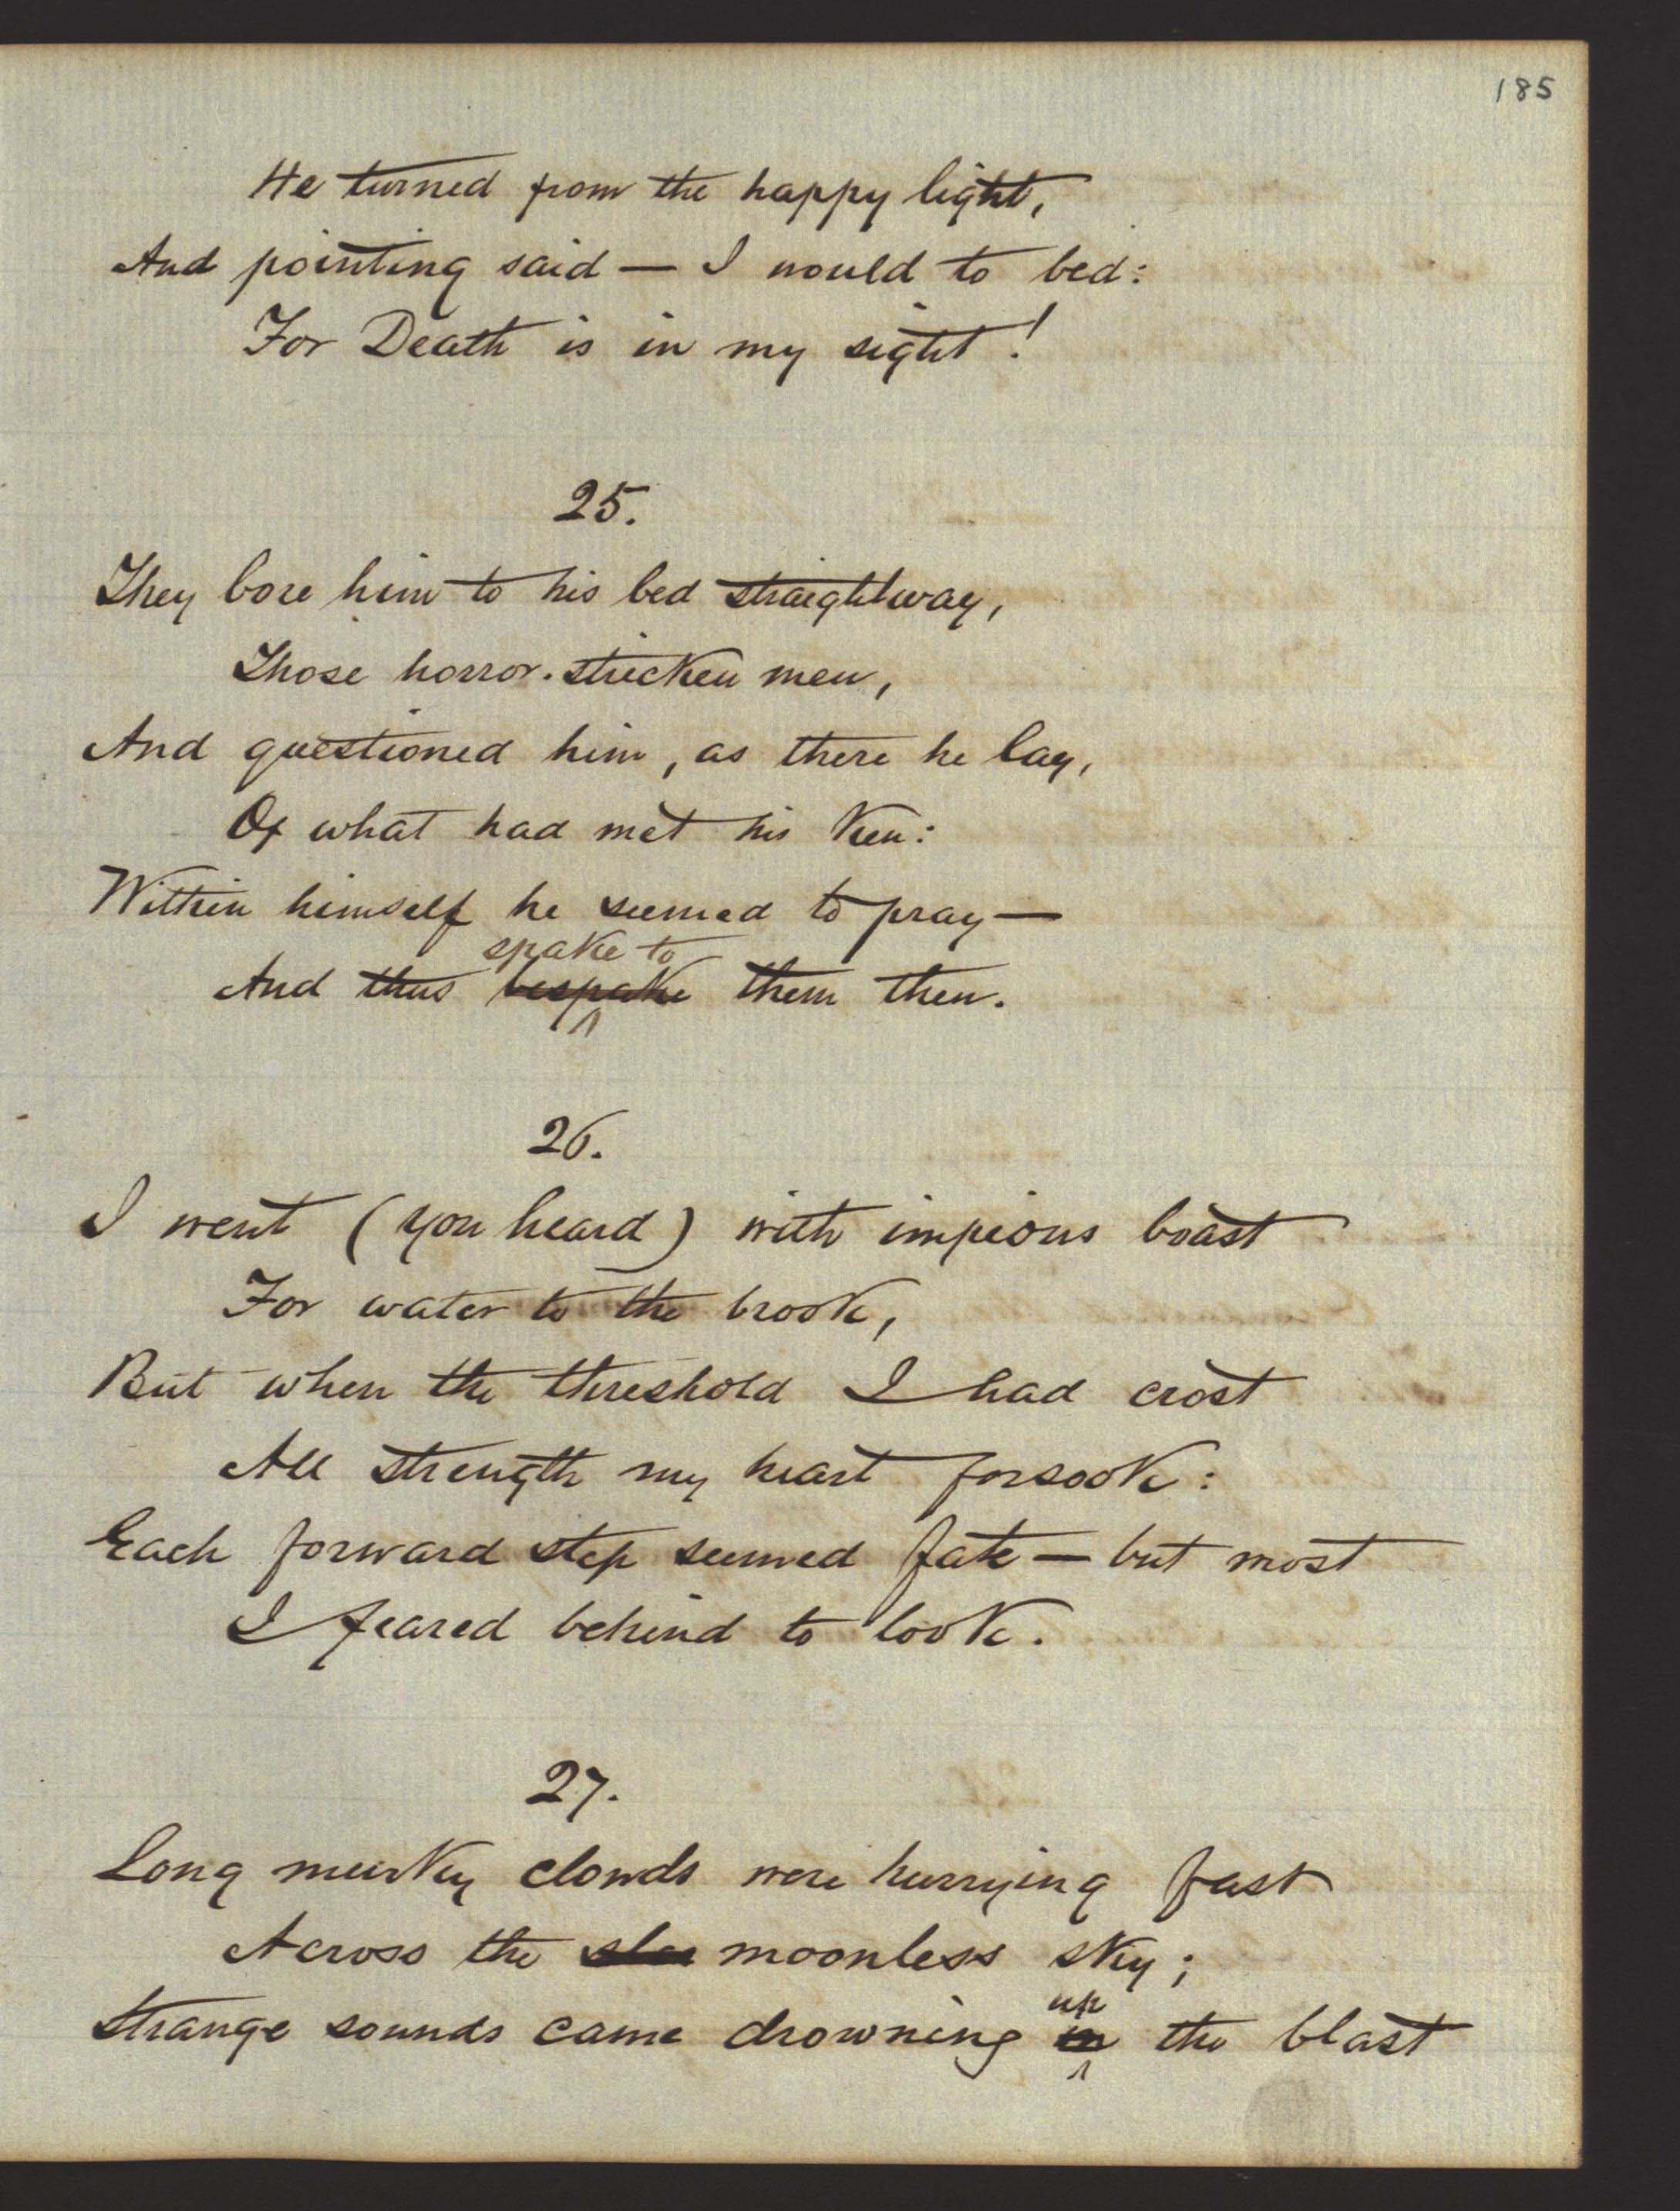 185
He turned from the happy light,
And pointing said — I would to bed:
For Death is in my sight!
25.
They bore him to his bed straightway,
Those horror-stricken men,
And questioned him, as there he lay,
Of what had met his ken:
Within himself he seemed to pray—
spake to
And thus bespake them then.
26.
I went (you heard) with impious boast
For water to the brook,
But when the threshold I had crost
All strength my heart forsook:
Each forward step seemed fate — but most
I feared behind to look.
27.
Long murky clouds were hurrying fast
Across the moonless sky;
up
Strange sounds came drowning in the blast